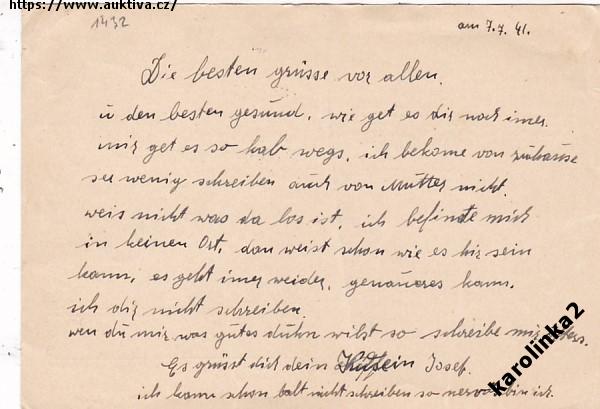 https://www.auktiva.cz/
1432
am 7.7.41.
Die besten grüsse vor allen.
u den besten gesund, wie get es dir noch imer.
mir get es so halb wegs, ich bekome von zuhause
see wenig schreiben auch von Mutter nicht.
weis nicht was da los ist, ich befinde mich
in keinen Ort, dan weist schon wie es hir sein
kann, es geht imer weider, genaueres kann,
ich dir nicht schreiben.
wen du mir was gutes duhn wilst so schreibe mir
Es grüsst dich dein Josef.
ich kann schon balt nicht schreiben so nervös bin ich.
karolinka2